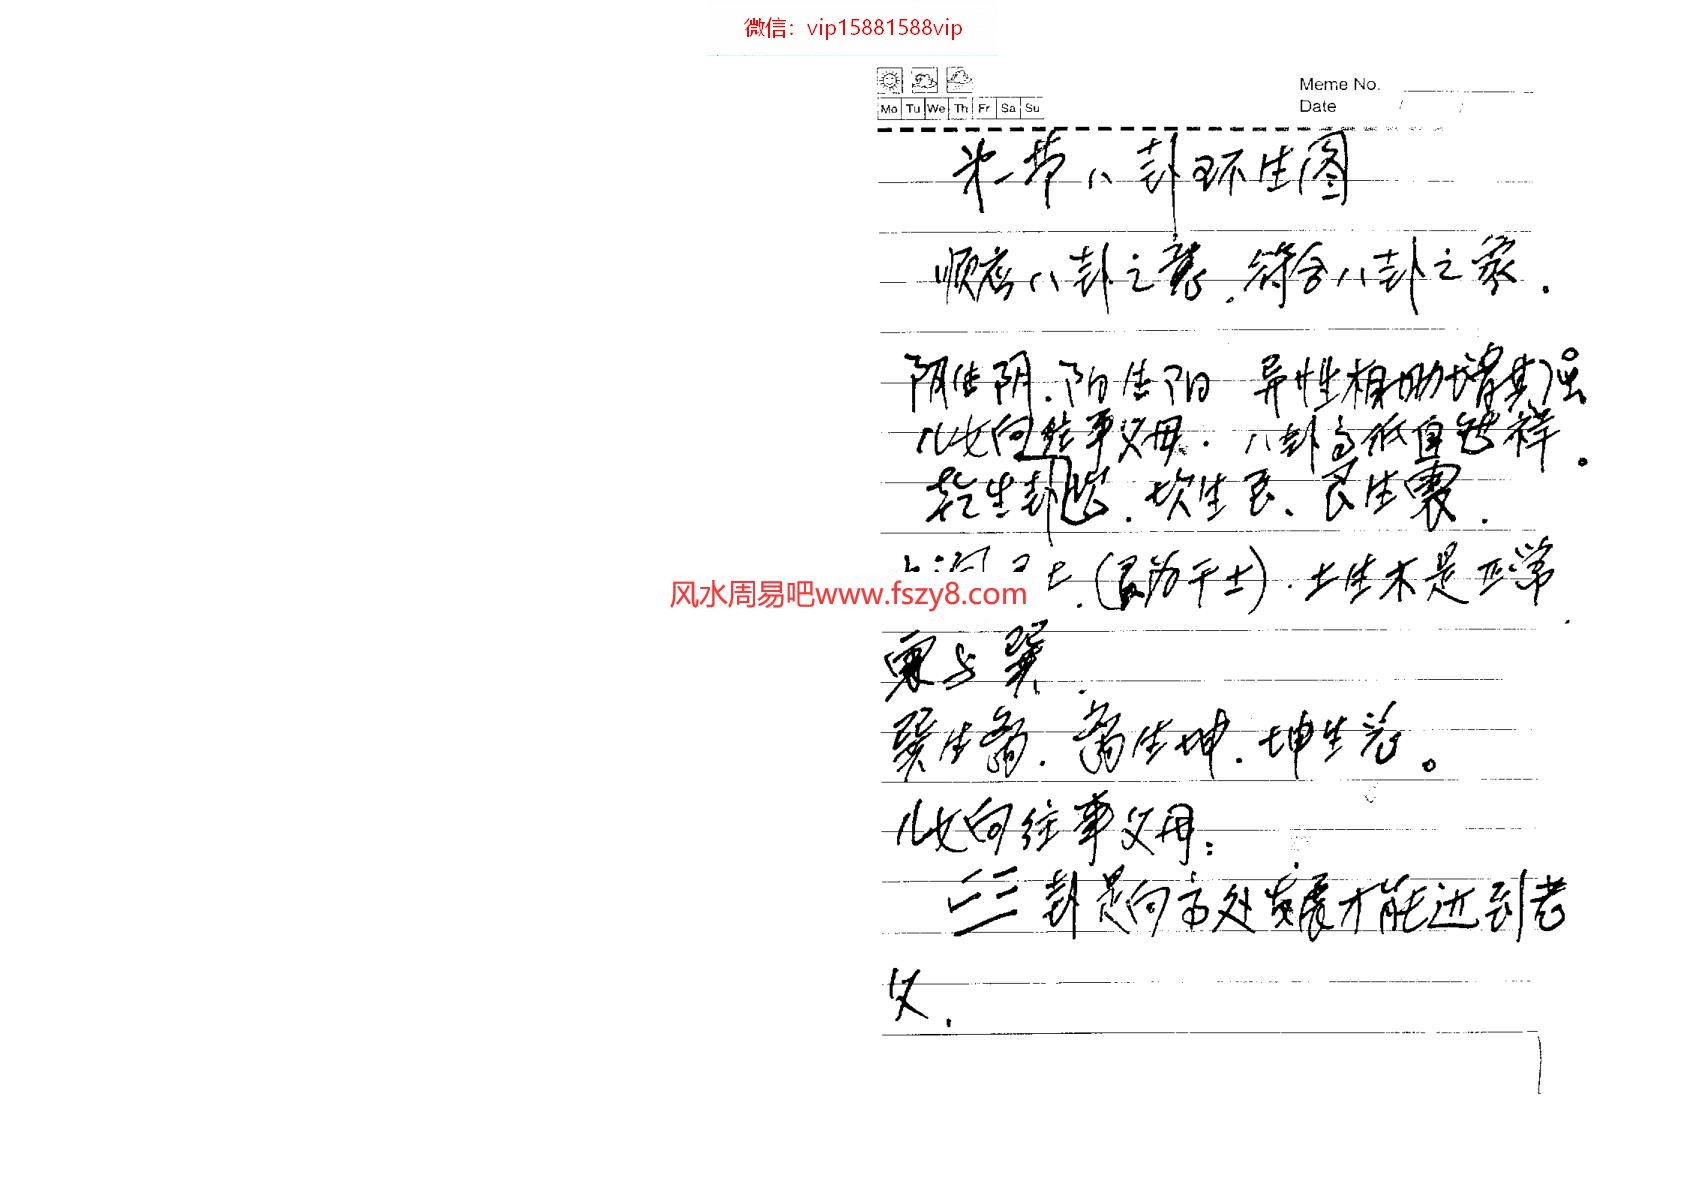 微信：vip15881588vip
Meme No.
Mo Tu We Th Fr Sa Su
Date / /
第一节八卦环生图
顺应八卦之意.符合八卦之象.
阴生阴.阳生阳 异性相助增其强
儿女向往事父母.八卦高低自
乾生坎.坎生艮、艮生震.
(艮为干土).土生木是正常.
风水周易吧www.fszy8.com
震与巽.
巽生离.离生坤.坤生兑。
儿女向往事父母：
三卦是向高处发展才能达到老
父.